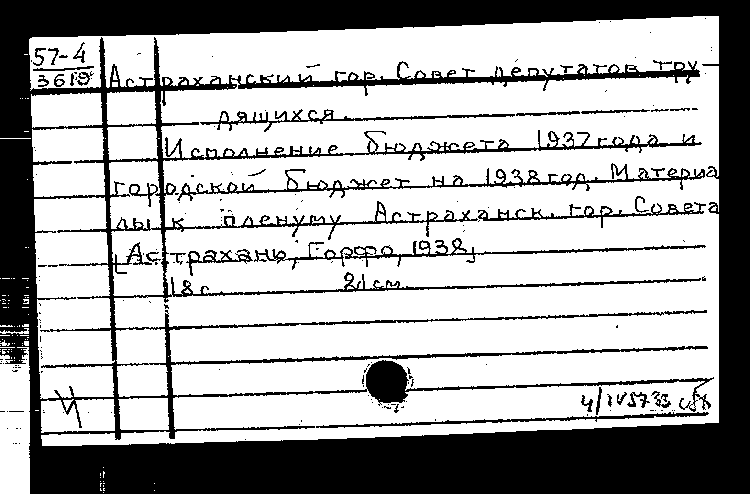 57-4
3619
Астраханский гор. Совет депутатов тру-
дящихся.
Исполнение бюджета 1937 года и
городской бюджет на 1938 год. Материа
лы к пленуму Астраханск. гор. Совета
[Астрахань, Горфо, 1938]
18 с. 21 см.
Ч